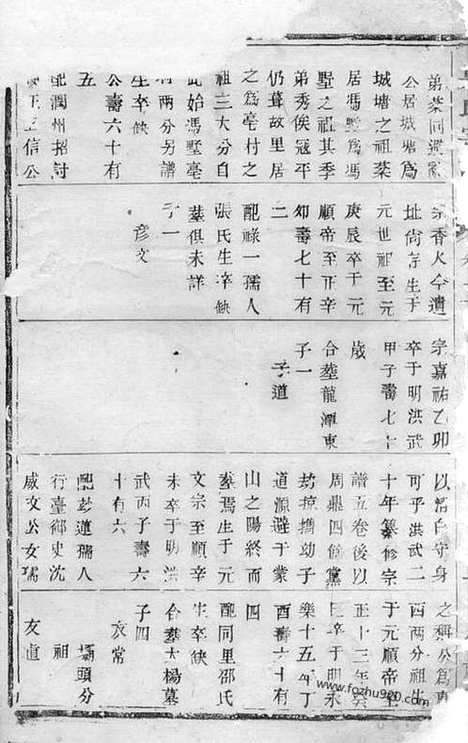 弟蔡同遷
公居城塘為
城塘之祖蔡
居馮墅為馮
墅之祖其季
弟秀俟冠平
仍葺故里居
之為亳村之
祖三大分自
此始馮墅亳
村兩分另譜
生卒缺
公壽六十有
五
配潤州招討
王信公
宗香火今遺
址尚存生于
元世祖至元
庚辰卒于元
順帝至正辛
卯壽七十有
二
配祿一孺人
張氏生卒缺
葬俱未詳
子一
彥文
宗嘉祐乙卯
卒于明洪武
甲子壽七十
歲
合葬龍潭東
子一
子道
以常自守身
可乎洪武二
十年纂修宗
譜五卷後以
周鼎四餘黨
刼掠攜幼子
道源避于蒙
山之陽終而
葬焉生于元
文宗至順辛
未卒于明洪
武丙子壽六
十有六
配彭蓮孺人
行臺御史沈
威文公女孺
之稱公為東
西兩分祖生
于元順帝至
正十三年癸
巳卒于明永
樂十五年丁
酉壽六十有
四
配同里邵氏
生卒缺
合葬大楊墓
子四
友常
壩頭分
祖
友直
www.fozhu920.com